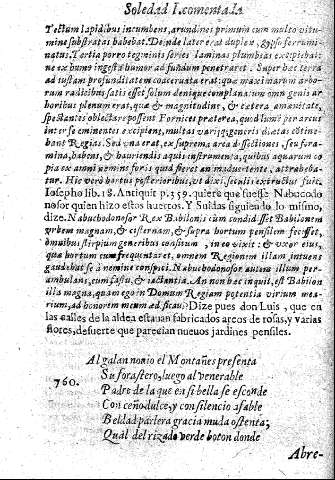 Soledad I. comentada
Tectum lapidibus incumbens, arundines primùm cum multo bitu-
mine substratas habebat. Deinde laterem duplex, gypso ferrumi-
natus. Tertia porro tegminis series laminas plumbeas excipiebat:
ne ex humo ingesta humor ad fundum penetraret. Super hæc terra
ad iustam profunditatem coaceruata erat: quæ maximarum arbo-
rum radicibus satis esset solum denique complanatum omni genere ar
boribus plenum erat, quæ & magnitudine, & cætera amænitate,
spectantes oblectare possent Fornices præterea, quòd lumê per arcus
inter se eminentes excipient, multas varijsq; generis diætas obtine-
bant Regias. Sed vna erat, ex suprema area dissectiones, seu fora-
mina, habens, & hauriendis aquis instrumenta, quibus aquarum co
pia ex amni nemine foris quid fieret an maduertente, attrabeba-
tur. Hic verò hortus posterioribus, vt dixi, seculis extructus fuit.
Iosepho lib. 18. Antiquit p. 359. quiere que fuesse Nabucodo
nosor quien hizo estos huertos. Y Suidas siguiendo lo mismo,
dize. Nabuchodonosor Rex Babilonis cum condidisset Babilonem
vrbem magnam, & cisternam, & supra hortum pensilem fecisset,
omnibus stirpium generibus consitum, in eo vixit: & vxor eius,
quæ hortum cum frequentaret, omnem Regionem illam intuens
gaudebat se à nemine conspici. Nabuchodonosor autem illum per-
ambulans, cum fastu, & iactantia. An non hæc inquit, est Babilon
illa magna, quam ego in Domum Regiam potentia virium mea-
rium, ad honorem meum ædificaui? Dize pues don Luis, que en
las calles de la aldea estauan fabricados arcos de rosas, y varias
flores, de suerte que parecian nueuos jardines pensiles.
Al galan nouio el Montañes presenta
Su forastero, luego al venerable
760. Padre de la que en si bella se esconde
Con ceño dulce, y con silencio afable
Beldad parlera gracia muda ostenta;
Qual del rizado verde boton donde
Abre-